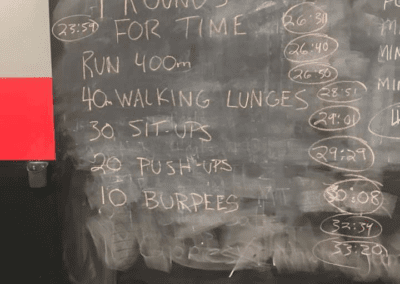 ROUNDS
23:59 FOR TIME 26:31
26:40
RUN 400m 26:50
40m WALKING LUNGES 28:51
30 SIT-UPS 29:01
20 PUSH-UPS 29:29
10 BURPEES 30:08
32:39
33:20
MIN
MIN